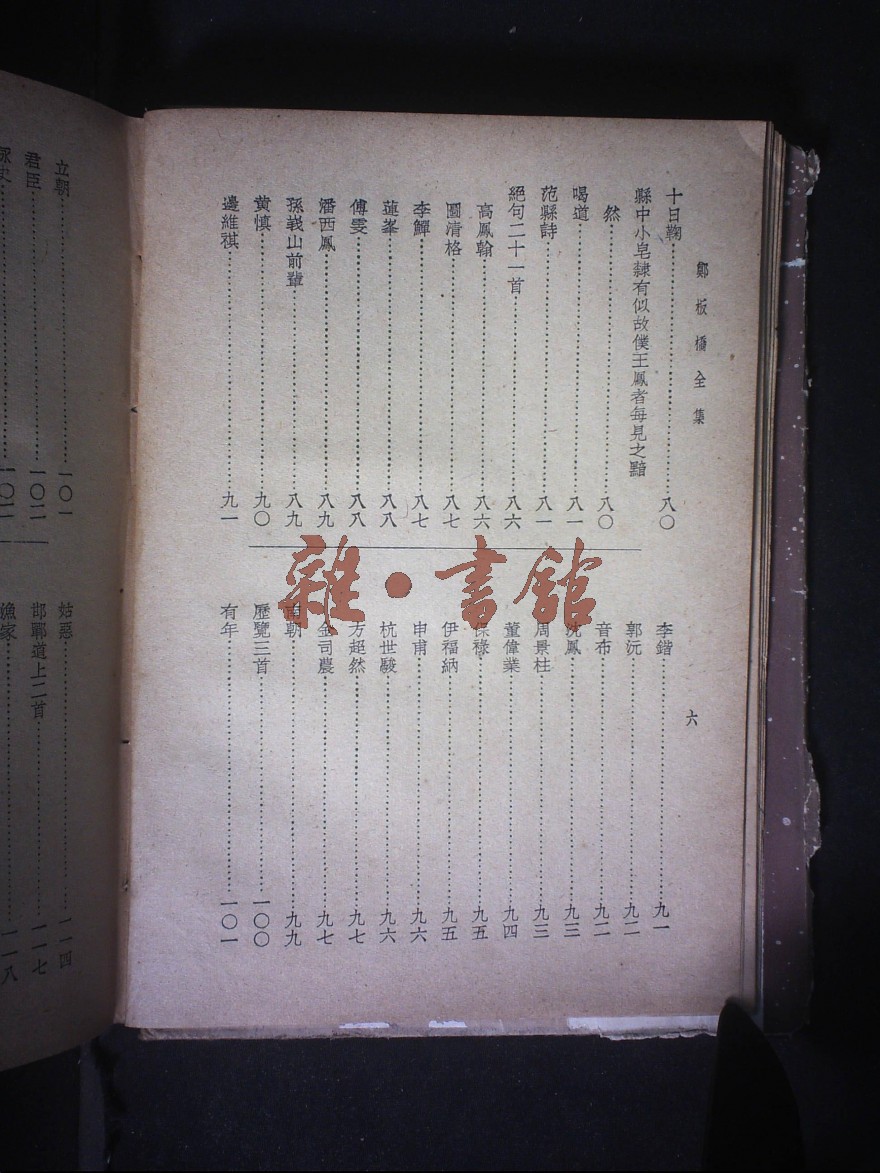 鄭板橋全集
六
十日鞠……八〇
縣中小皂隸有似故僕王鳳者每見之黯
然……八〇
喝道……八一
范縣詩……八一
絕句二十一首……八六
高鳳翰……八六
圖清格……八七
李鱓……八七
蓮峯……八八
傅雯……八八
潘西鳳……八九
孫峩山前輩……八九
黄慎……九〇
邊維祺……九一
李鍇……九一
郭沅……九二
音布……九二
沈鳳……九三
周景柱……九三
董偉業……九四
保祿……九五
伊福納……九五
申甫……九六
杭世駿……九六
方超然……九七
金司農……九七
南朝……九九
歷覽三首……一〇〇
有年……一〇一
立朝……一〇一
君臣……一〇二
詠史……一〇二
姑惡……一一四
邯鄲道上二首……一一七
漁家……一一八
雜·書館